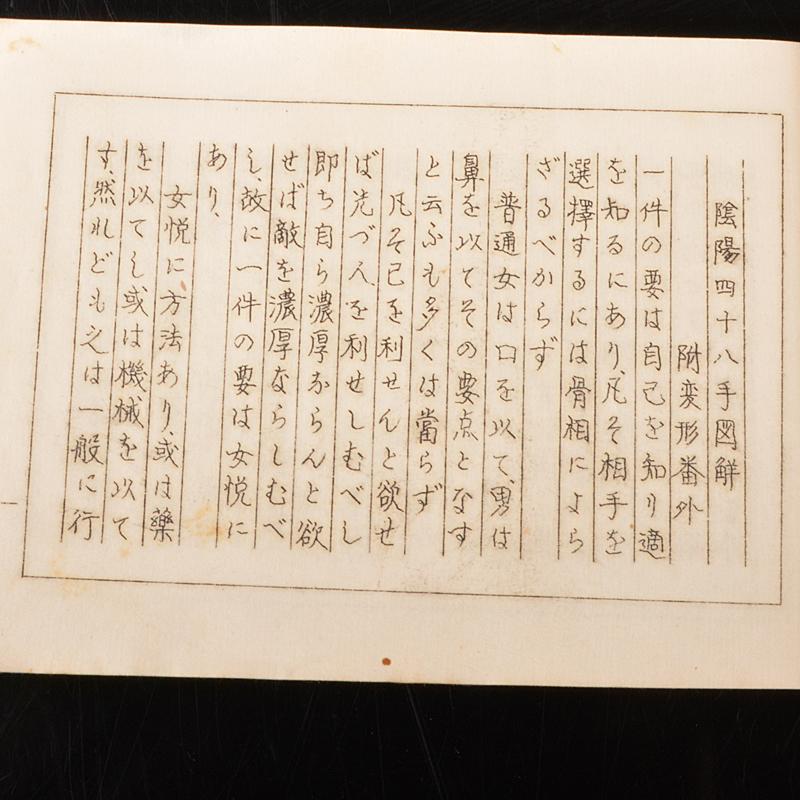 陰陽四十八手図解
附変形番外
一件の要は自己を知り適
を知るにあり、凡そ相手を
選擇するには骨相によら
ざるべからず
普通女は口を以て、男は
鼻を以てその要点となす
と云ふも多くは當らず
凡そ己を利せんと欲せ
ば先づ人を利せしむべし
即ち自ら濃厚ならんと欲
せば敵を濃厚ならしむべ
し、故に一件の要は女悦に
あり、
女悦に方法あり、或は藥
を以てし或は機械を以て
す、然れども之は一般に行